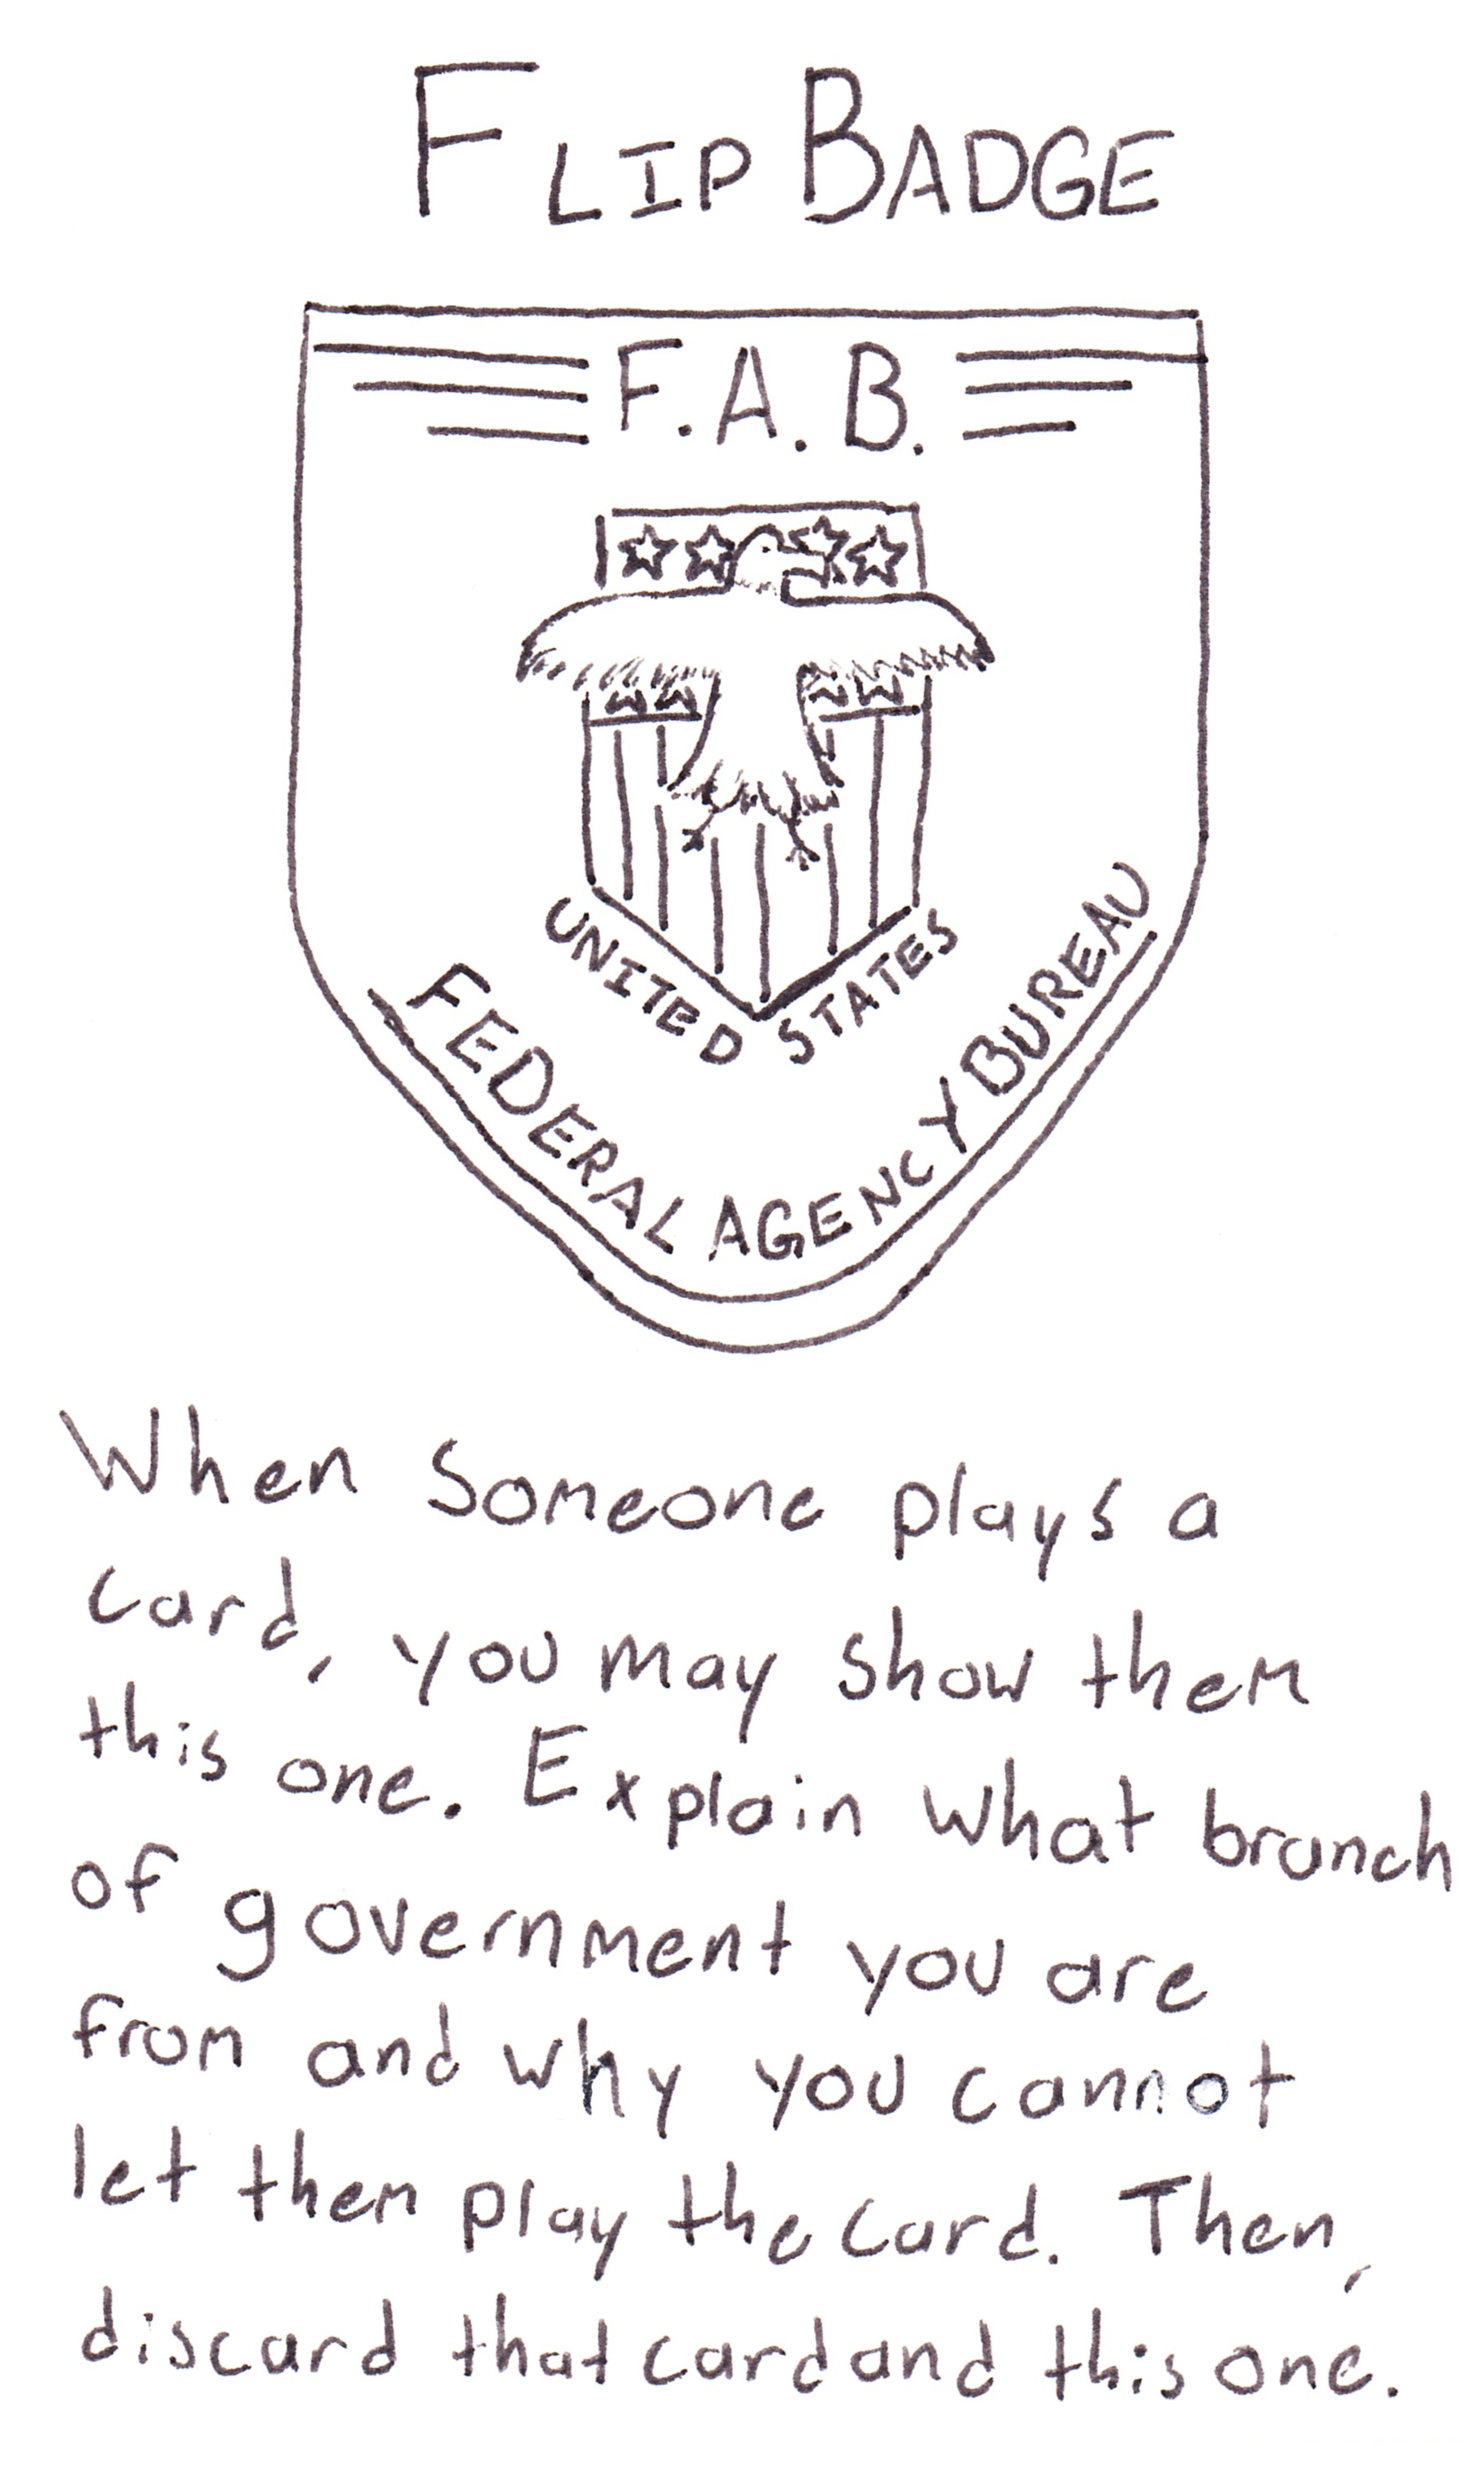 FLIP BADGE
F.A.B.
UNITED STATES
FEDERAL AGENCY BUREAU
When Someone plays a
card, you may show them
this one. Explain what branch
of government you are
from and why you cannot
let them play the card. Then,
discard that card and this one.